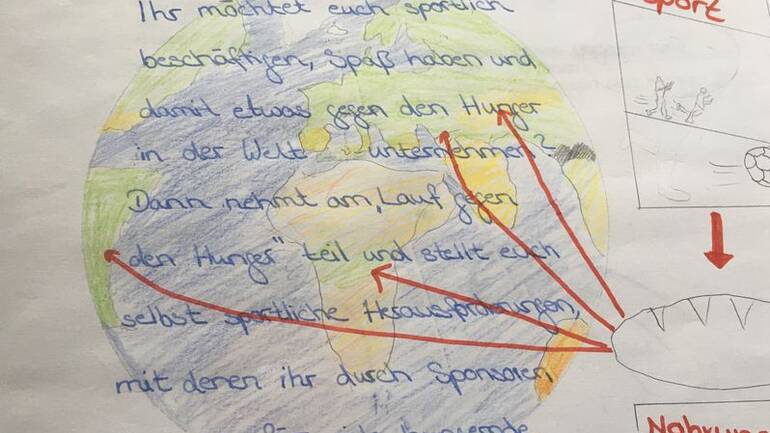 Ihr möchtet euch sportlich
beschäftigen, Spaß haben und
damit etwas gegen den Hunger
in der Welt unternehmen?
Dann nehmt am „Lauf gegen
den Hunger" teil und stellt euch
selbst sportliche Herausforderungen,
mit denen ihr durch Sponsoren
Sport